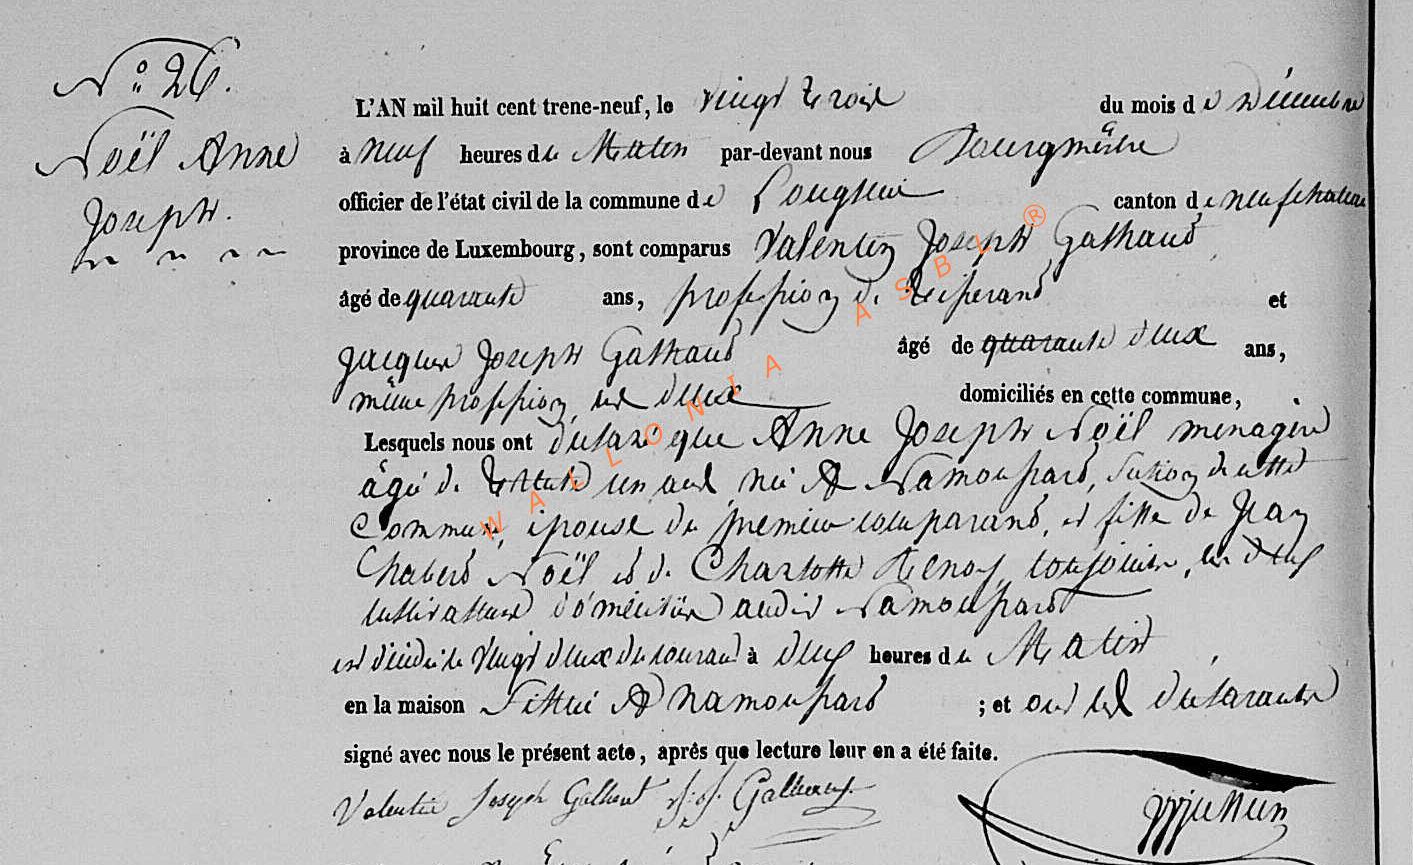 N.° 26.
Noël Anne
Joseph.
L'AN mil huit cent trene-neuf, le vingt trois du mois de décembre
à neuf heures du Matin par-devant nous Bourgmestre
officier de l'état civil de la commune de canton de neufchateau
province de Luxembourg, sont comparus Valentin Joseph Galhaut
âgé de quarante ans, profession de et
Jacques Joseph Galhaut âgé de quarante deux ans,
même profession, les deux domiciliés en cette commune,
Lesquels nous ont déclaré que Anne Joseph Noël menagère
âgée de trente un ans, née à Namoussart, section de cette
Commune, épouse du premier comparant, et fille de Jean
Noël et de Charlotte conjoints, les deux
audit Namoussart
est décédée le vingt deux du courant à deux heures du Matin
en la maison sittué à namoussart ; et ont les déclarants
signé avec nous le présent acte, après que lecture leur en a été faite.
Valentin Joseph Galhaut J. J. Galhaut
WALLONIA ASBL ®